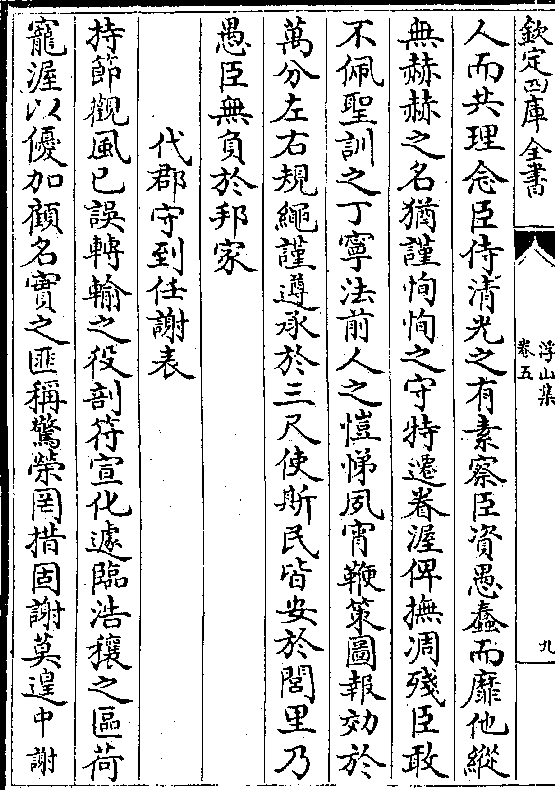 欽定四庫全書
浮山集
卷五
九
人而共理念臣侍清光之有素察臣資愚蠢而靡他縱
無赫赫之名猶謹恂恂之守特遷眷渥俾撫凋殘臣敢
不佩聖訓之丁寧法前人之愷悌夙宵鞭策圖報効於
萬分左右規繩謹遵承於三尺使斯民皆安於閭里乃
愚臣無負於邦家
代郡守到任謝表
持節觀風已誤轉輸之役剖符宣化遽臨浩穰之區荷
寵渥以優加顧名實之匪稱驚榮罔措固謝莫遑中謝